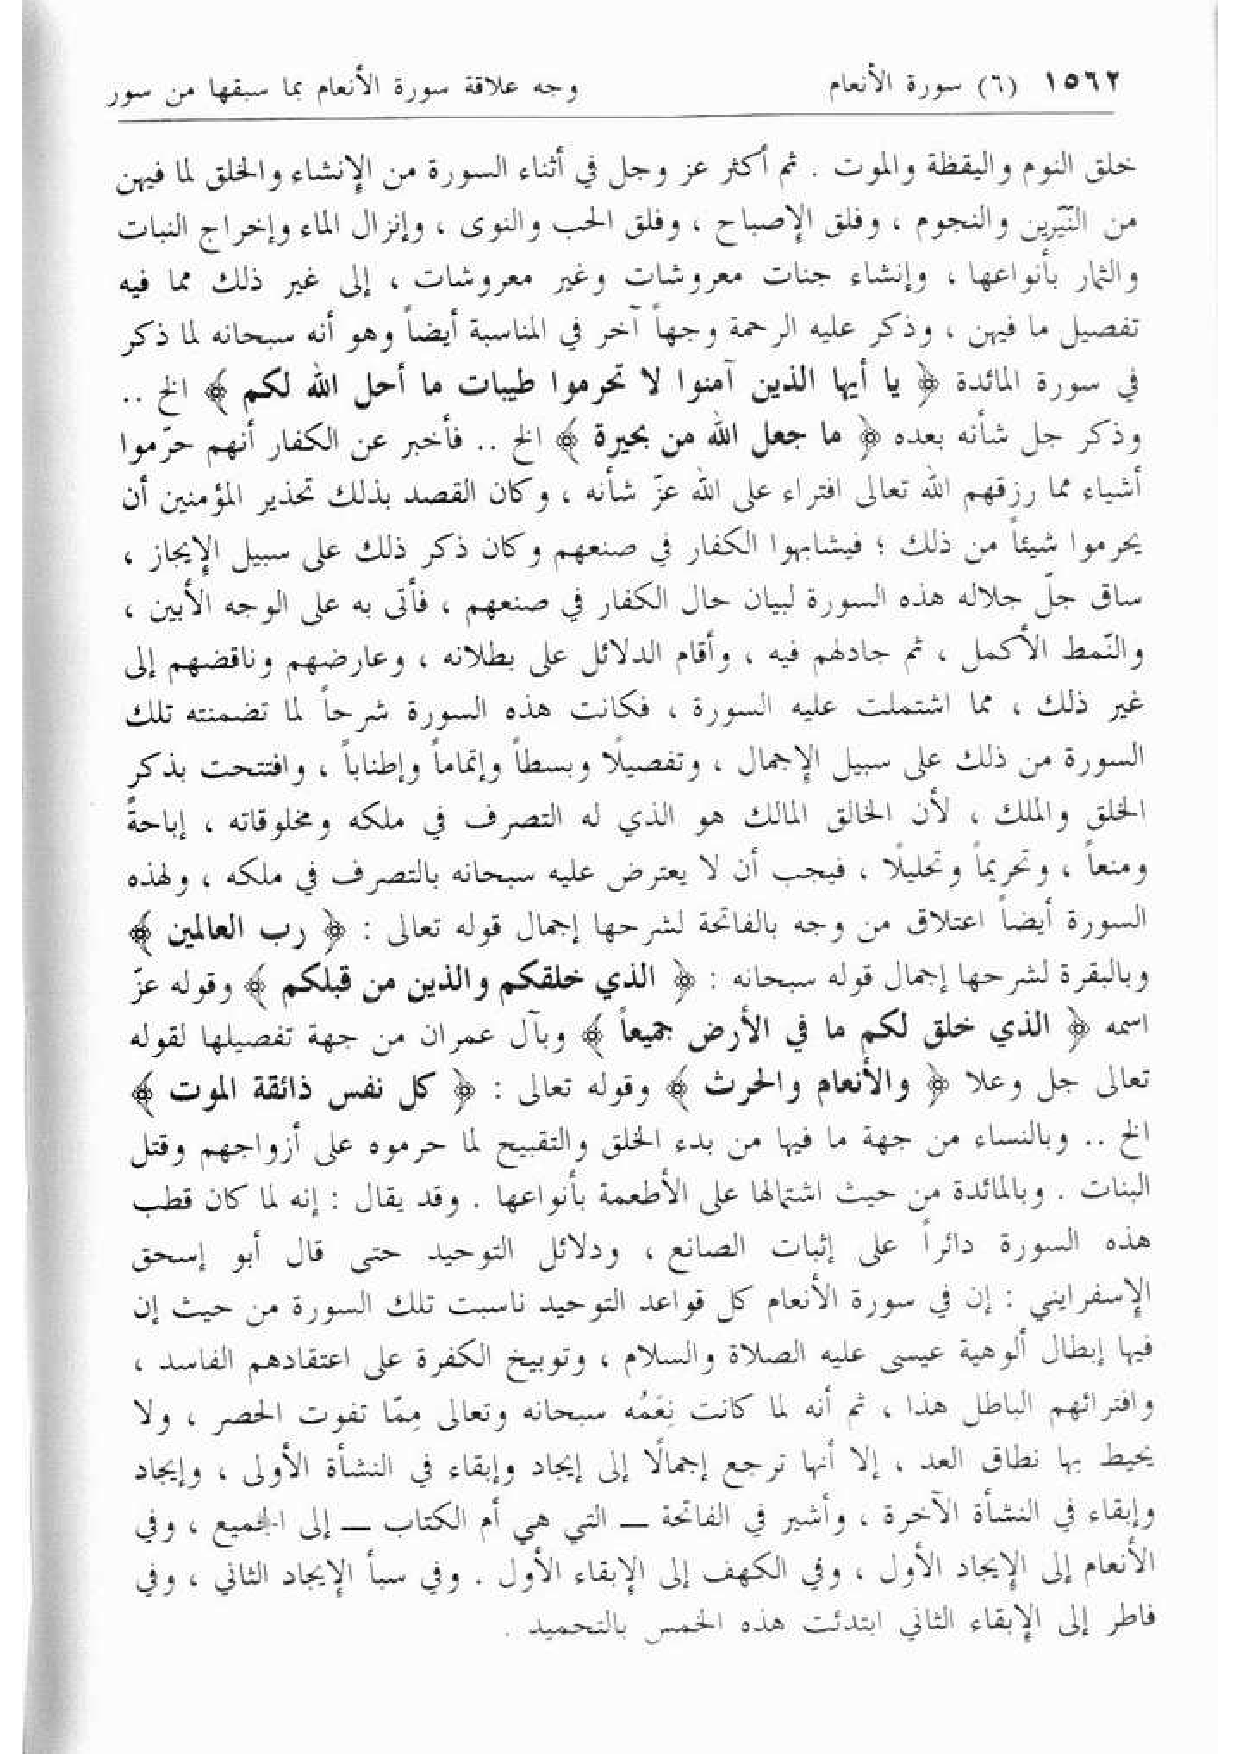 ١٥٦٢ (٦) سورة الأنعام وجه علاقة سورة الأنعام بما سبقها من سور
خلق النوم واليقظة والموت . ثم أكثر عز وجل في أثناء السورة من الإنشاء والخلق لما فيهن
من النّيّرين والنجوم ، وفلق الإصباح ، وفلق الحب والنوى ، وإنزال الماء وإخراج النبات
والثمار بأنواعها ، وإنشاء جنات معروشات وغير معروشات ، إلى غير ذلك مما فيه
تفصيل ما فيهن ، وذكر عليه الرحمة وجهاً آخر في المناسبة أيضاً وهو أنه سبحانه لما ذكر
في سورة المائدة ﴿ يا أيها الذين آمنوا لا تحرموا طيبات ما أحل الله لكم ﴾ الخ ..
وذكر جل شأنه بعده ﴿ ما جعل الله من بحيرة ﴾ الخ .. فأخبر عن الكفار أنهم حرّموا
أشياء مما رزقهم الله تعالى افتراء على الله عزّ شأنه ، وكان القصد بذلك تحذير المؤمنين أن
يحرموا شيئاً من ذلك ؛ فيشابهوا الكفار في صنعهم وكان ذكر ذلك على سبيل الإيجاز ،
ساق جلّ جلاله هذه السورة لبيان حال الكفار في صنعهم ، فأتى به على الوجه الأبين ،
والنّمط الأكمل ، ثم جادلهم فيه ، وأقام الدلائل على بطلانه ، وعارضهم وناقضهم إلى
غير ذلك ، مما اشتملت عليه السورة ، فكانت هذه السورة شرحاً لما تضمنته تلك
السورة من ذلك على سبيل الإجمال ، وتفصيلًا وبسطاً وإتماماً وإطناباً ، وافتتحت بذكر
الخلق والملك ، لأن الخالق المالك هو الذي له التصرف في ملكه ومخلوقاته ، إباحةً
ومنعاً ، وتحريماً وتحليلًا ، فيجب أن لا يعترض عليه سبحانه بالتصرف في ملكه ، ولهذه
السورة أيضاً اعتلاق من وجه بالفاتحة لشرحها إجمال قوله تعالى : ﴿ رب العالمين ﴾
وبالبقرة لشرحها إجمال قوله سبحانه : ﴿ الذي خلقكم والذين من قبلكم ﴾ وقوله عزّ
اسمه ﴿ الذي خلق لكم ما في الأرض جميعاً ﴾ وبآل عمران من جهة تفصيلها لقوله
تعالى جل وعلا ﴿ والأنعام والحرث ﴾ وقوله تعالى : ﴿ كل نفس ذائقة الموت ﴾
الخ .. وبالنساء من جهة ما فيها من بدء الخلق والتقبيح لما حرموه على أزواجهم وقتل
البنات . وبالمائدة من حيث اشتمالها على الأطعمة بأنواعها . وقد يقال : إنه لما كان قطب
هذه السورة دائراً على إثبات الصانع ، ودلائل التوحيد حتى قال أبو إسحق
الإسفرايني : إن في سورة الأنعام كل قواعد التوحيد ناسبت تلك السورة من حيث إن
فيها إبطال ألوهية عيسى عليه الصلاة والسلام ، وتوبيخ الكفرة على اعتقادهم الفاسد ،
وافترائهم الباطل هذا ، ثم أنه لما كانت نِعَمُه سبحانه وتعالى مِمّا تفوت الحصر ، ولا
يحيط بها نطاق العد ، إلا أنها ترجع إجمالًا إلى إيجاد وإبقاء في النشأة الأولى ، وإيجاد
وإبقاء في النشأة الآخرة ، وأشير في الفاتحة ــ التي هي أم الكتاب ــ إلى الجميع ، وفي
الأنعام إلى الإيجاد الأول ، وفي الكهف إلى الإبقاء الأول . وفي سبأ الإيجاد الثاني ، وفي
فاطر إلى الإبقاء الثاني ابتدئت هذه الخمس بالتحميد .